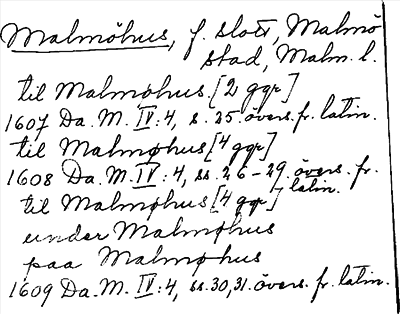 Malmöhus, f. slott, Malmö
stad, Malm. l.
til Malmøhus [2 ggr]
1607 Da. M. IV:4, s. 25. övers. fr. latin.
til Malmøhus [4 ggr]
1608 Da. M. IV:4, ss. 26-29. övers. fr. latin.
til Malmøhus [4 ggr]
under Malmøhus
paa Malmøhus
1609 Da. M. IV:4, ss. 30, 31. övers. fr. latin.